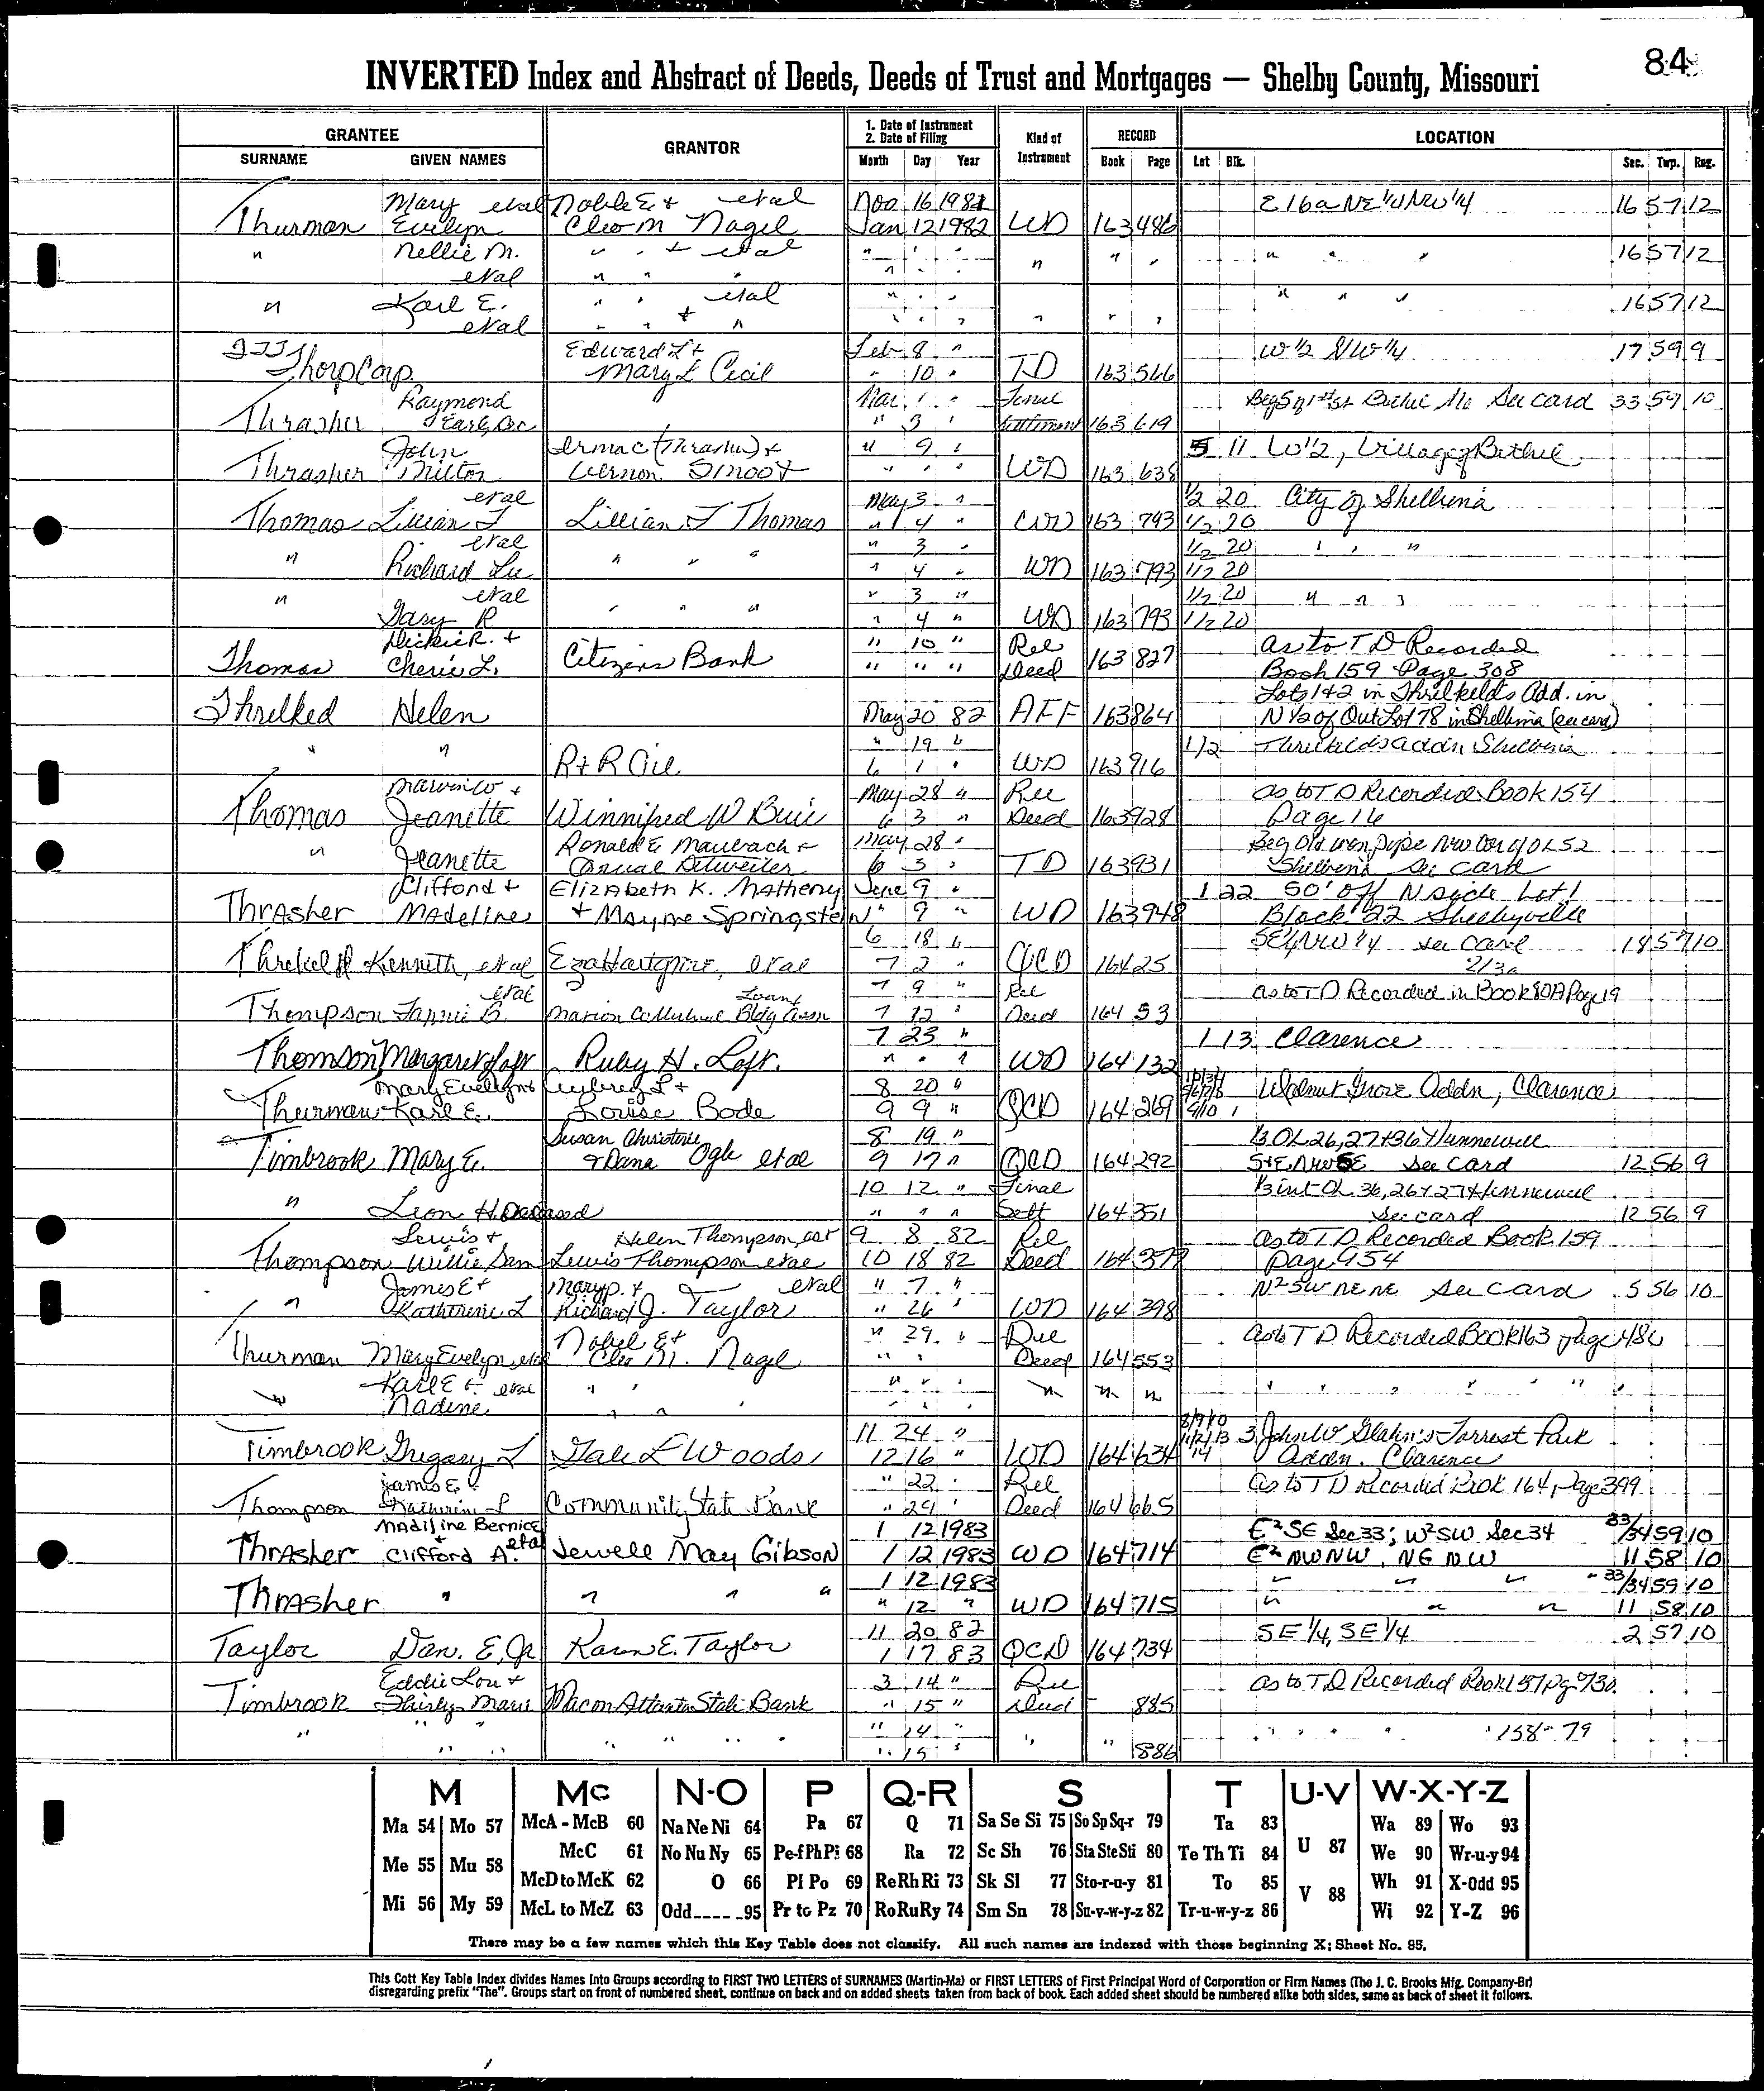 84
INVERTED Index and Abstract of Deeds, Deeds of Trust and Mortgages — Shelby County, Missouri
GRANTEE GRANTOR 1. Date of Instrument 2. Date of Filing Kind of Instrument RECORD LOCATION
SURNAME GIVEN NAMES Month Day Year Book Page Lot Blk. Sec. Twp. Rng.
Mary etal Noble E + etal Nov 16 1981 E 16a NE 1/4 NW 1/4 16 57 12
Thurman Evelyn Cleo M Nagel Jan 12 1982 WD 163 486
" Nellie M. " " + etal " " " " " " 16 57 12
etal " " " " " " " " "
" Karl E. " " etal " " " " " " 16 57 12
etal " " + " " " " " " "
ITT Edward L + Feb 8 " W 1/2 NW 1/4 17 59 9
Thorp Corp. Mary L Cecil " 10 " TD 163 566
Raymond Mar. 1 " Final Beg 1st St Bethel Mo See card 33 59 10
Thrasher Earl, Dec " 3 " Settlement 163 619
John Irma C (Thrasher) + " 9 " 5 11 W 1/2, Village of Bethel
Thrasher Milton Vernon Smoot " " " WD 163 638
etal May 3 " 1/2 20 City of Shelbina
Thomas Lillian T Lillian T Thomas " 4 " WD 163 793 1/2 20
etal " 3 " 1/2 20 " " "
" Richard Lee " " " " 4 " WD 163 793 1/2 20
" etal " 3 " 1/2 20 " " "
Gary R " " " " 4 " WD 163 793 1/2 20
Dickie R. + " 10 " Rel As to T D Recorded
Thomas Cherie L. Citizens Bank " " " Deed 163 827 Book 159 Page 308
Lots 1+2 in Threlkeld's Add. in
Threlked Helen May 20 82 AFF 163 864 N 1/2 of Out Lot 78 in Shelbina (see card)
" " " 19 " 1/2 Threlkelds Addn Shelbina
R + R Oil 6 1 " WD 163 916
Marvin W + May 28 " Rel as to T D Recorded Book 154
Thomas Jeanette Winnifred W Buie 6 3 " Deed 163 928 Page 16
" Ronald E Maubach + May 28 " Beg Old iron pipe NW Cor of OL 52
Jeanette Detweiler 6 3 " TD 163 931 Shelbina See card
Clifford + Elizabeth K. Matheny June 9 " 1 22 50' off N side Lot 1
Thrasher Madeline + Mayme Springstein " 9 " WD 163 948 Block 22 Shelbyville
6 18 " SE 1/4 NW 1/4 see card 18 57 10
Threlkeld Kenneth, etal Eza etal 7 2 " QCD 164 25 2/3a
etal Loan 7 9 " Rel as to T D Recorded in Book 80A Page 19
Thompson Fannie B. Marion Co Mutual Bldg Assn 7 12 " Deed 164 53
7 23 " 1 13 Clarence
Thomson, Margaret Lofr Ruby H. Lofr. " " " WD 164 132
Mary Evelyn + Aubrey L + 8 20 " Walnut Grove Addn, Clarence
Thurman Karl E. Louise Bode 9 9 " QCD 164 269 9/10
Susan Christine 8 19 " 1/3 OL 26, 27 + 36 Hunnewell
Timbrook Mary E. + Dana Ogle etal 9 17 " QCD 164 292 S+E NW SE See card 12 56 9
10 12 " Final 1/3 int OL 36, 26 + 27 Hunnewell
" Leon H. Deceased " " " Sett 164 351 see card 12 56 9
Lewis + Helen Thompson, est 9 8 82 Rel As to T D Recorded Book 159
Thompson Willie Sam Lewis Thompson etal 10 18 82 Deed 164 377 Page 954
James E + Mary P. + etal " 7 " N 2 SW NE NE See card 5 56 10
" Katherine L Richard J. Taylor " 26 " WD 164 398
Nobel E + " 29 " Rel as to T D Recorded Book 163 page 486
Thurman Mary Evelyn, etal Cleo M. Nagel " " Deed 164 553
Karl E + etal " " " " " " " " " " " " " "
" Nadine " " " " " "
11 24 " 8/9/10 11/12/13 3 John W Glahn's Forrest Park
Timbrook Gregory L Gale L Woods 12 16 " WD 164 634 14 Addn. Clarence
James E. + " 22 " Rel as to T D Recorded Book 164, Page 399
Thompson Katherine L Community State Bank " 29 " Deed 164 665
Madiline Bernice 1 12 1983 E 2 SE Sec 33; W 2 SW Sec 34 33/34 59 10
Thrasher + Clifford A. etal Jewell May Gibson 1 12 1983 WD 164 714 E 2 NW NW, NE NW 11 58 10
1 12 1983 " " " " 33/34 59 10
Thrasher " " " " " 12 " WD 164 715 " " " 11 58 10
11 20 82 SE 1/4, SE 1/4 2 57 10
Taylor Dan. E, Jr Karen E. Taylor 1 17 83 QCD 164 734
Eddie Lou + 3 14 " Rel as to T D Recorded Book 157 pg 730
Timbrook Shirley Marie Macon Atlanta State Bank " 15 " Deed 885
" " " " " " " " 14 " " " " " " " " 158 - 79
" 15 " 886
M Mc N-O P Q-R S T U-V W-X-Y-Z
Ma 54 Mo 57 McA - McB 60 Na Ne Ni 64 Pa 67 Q 71 Sa Se Si 75 So Sp Sq-r 79 Ta 83 Wa 89 Wo 93
Me 55 Mu 58 McC 61 No Nu Ny 65 Pe-f Ph Pi 68 Ra 72 Sc Sh 76 Sta Ste Sti 80 Te Th Ti 84 U 87 We 90 Wr-u-y 94
McD to McK 62 O 66 Pl Po 69 Re Rh Ri 73 Sk Sl 77 Sto-r-u-y 81 To 85 V 88 Wh 91 X-Odd 95
Mi 56 My 59 McL to McZ 63 Odd---- -95 Pr to Pz 70 Ro Ru Ry 74 Sm Sn 78 Su-v-w-y-z 82 Tr-u-w-y-z 86 Wi 92 Y-Z 96
There may be a few names which this Key Table does not classify. All such names are indexed with those beginning X; Sheet No. 95.
This Cott Key Table Index divides Names Into Groups according to FIRST TWO LETTERS of SURNAMES (Martin-Ma) or FIRST LETTERS of First Principal Word of Corporation or Firm Names (The J. C. Brooks Mfg. Company-Br)
disregarding prefix "The". Groups start on front of numbered sheet, continue on back and on added sheets taken from back of book. Each added sheet should be numbered alike both sides, same as back of sheet it follows.